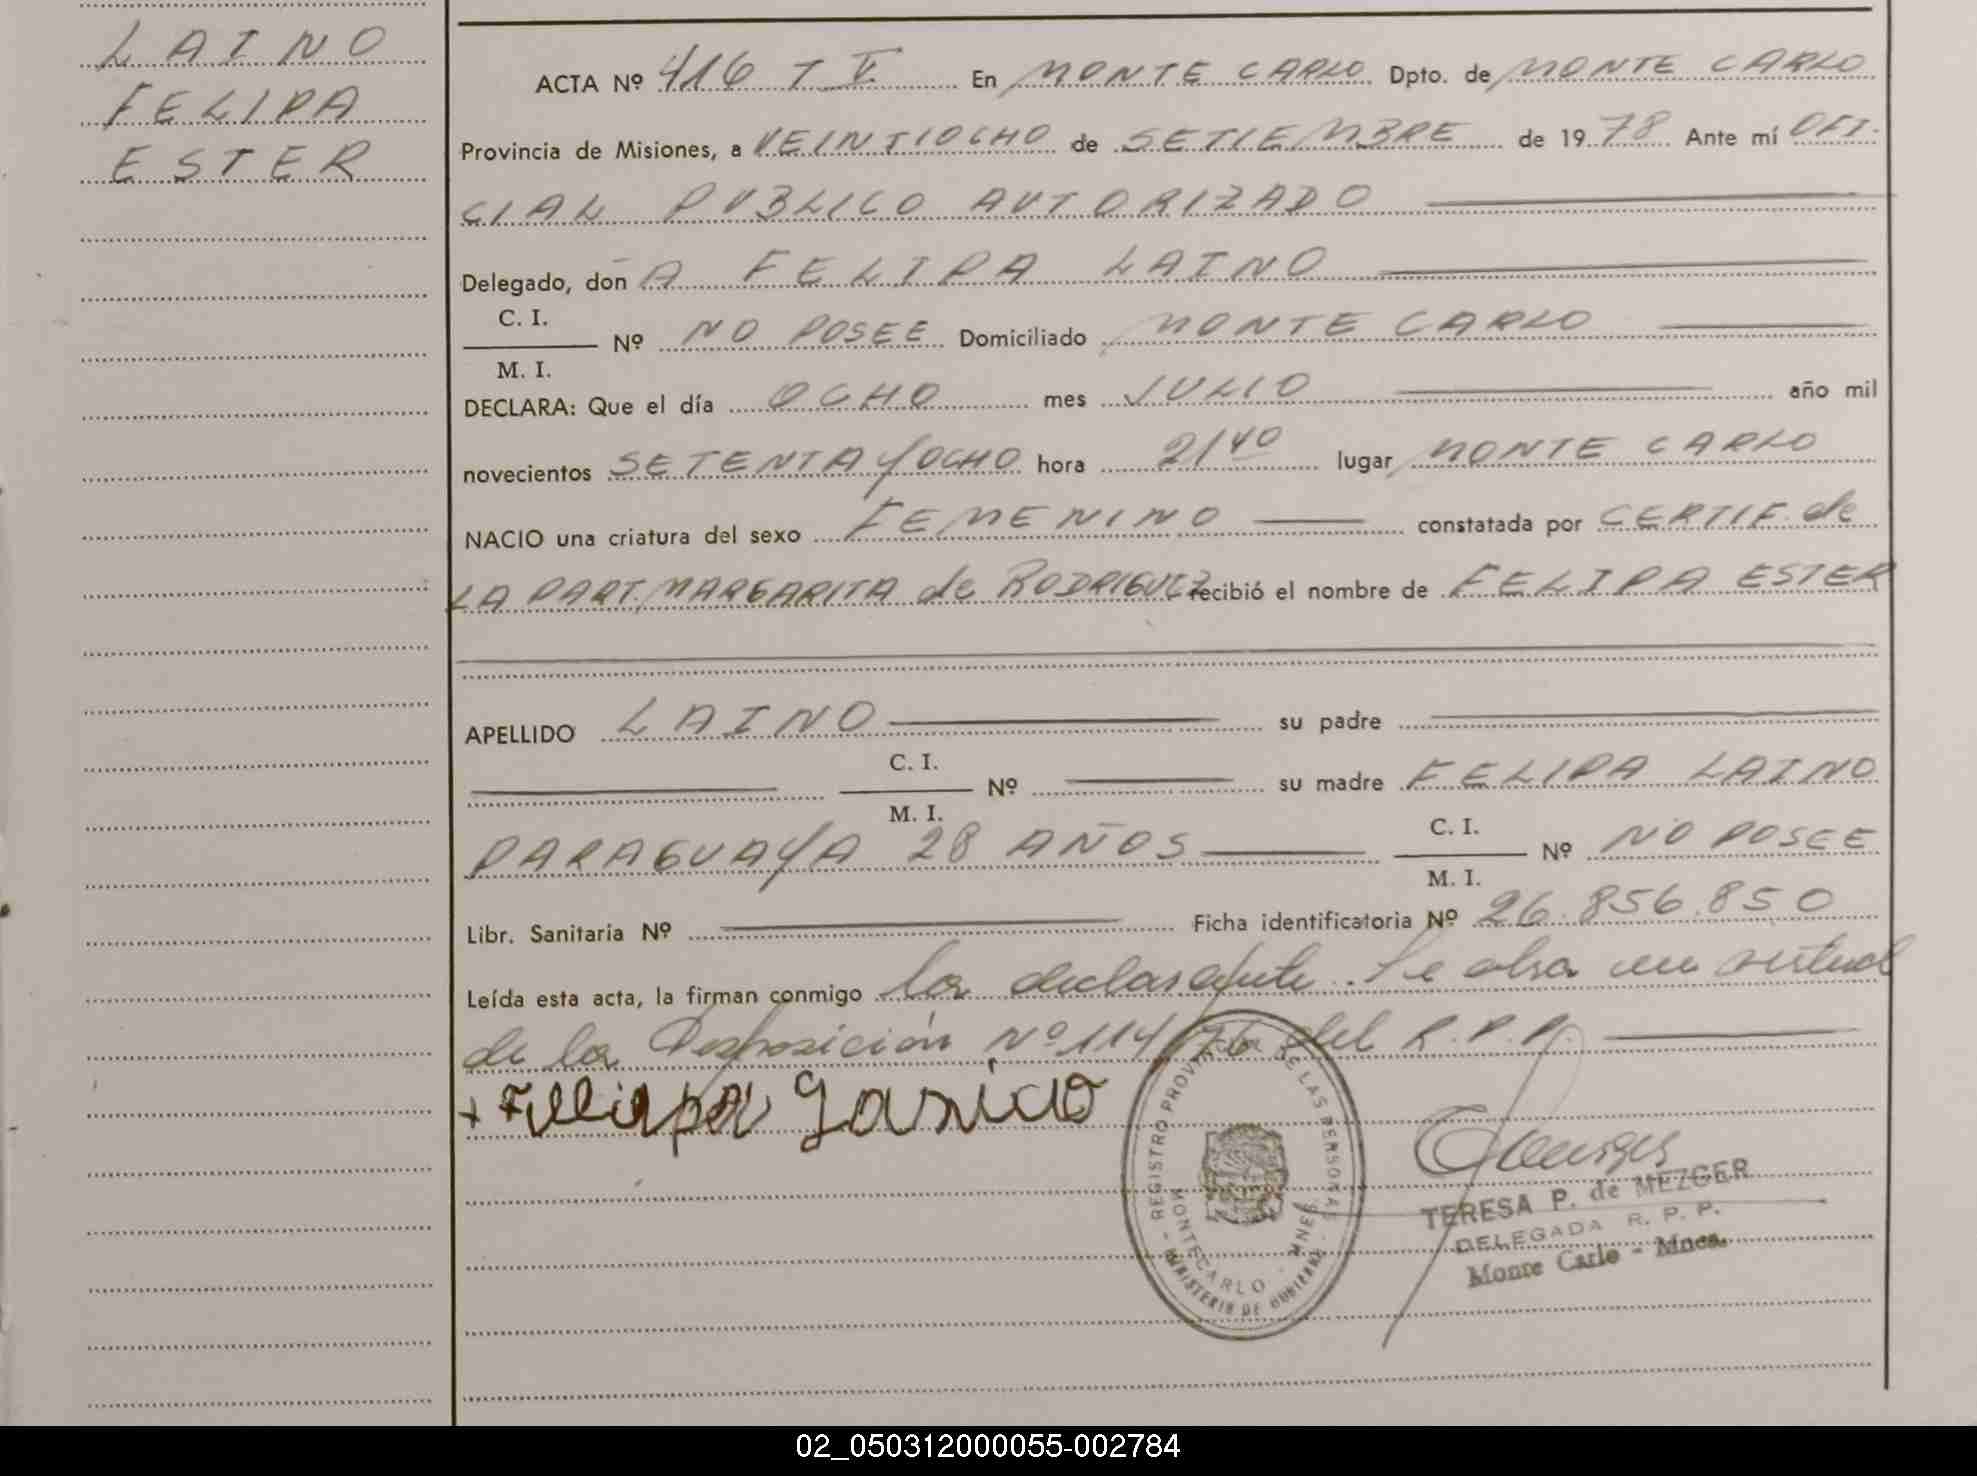 LAINO
FELIPA
ESTER
ACTA Nº 416 T V En MONTE CARLO Dpto. de MONTE CARLO
Provincia de Misiones, a VEINTIOCHO de SETIEMBRE de 1978 Ante mí OFI-
CIAL PUBLICO AUTORIZADO
Delegado, don A FELIPA LAINO
C. I.
Nº NO POSEE Domiciliado MONTE CARLO
M. I.
DECLARA: Que el día OCHO mes JULIO año mil
novecientos SETENTA y OCHO hora 21 40 lugar MONTE CARLO
NACIO una criatura del sexo FEMENINO constatada por CERTIF. de
LA PART. MARGARITA de RODRIGUEZ recibió el nombre de FELIPA ESTER
APELLIDO LAINO su padre
C. I.
Nº su madre FELIPA LAINO
M. I.
PARAGUAYA 28 AÑOS C. I. Nº NO POSEE
M. I.
Libr. Sanitaria Nº Ficha identificatoria Nº 26.856.850
Leída esta acta, la firman conmigo la declarante. Se labra en virtud
de la Disposición Nº 114/76 del R.P.P.
REGISTRO PROVINCIAL DE LAS PERSONAS
MONTECARLO - MNES.
- MINISTERIO DE GOBIERNO -
TERESA P. de MEZGER
DELEGADA R. P. P.
Monte Carlo - Mnes.
02_050312000055-002784